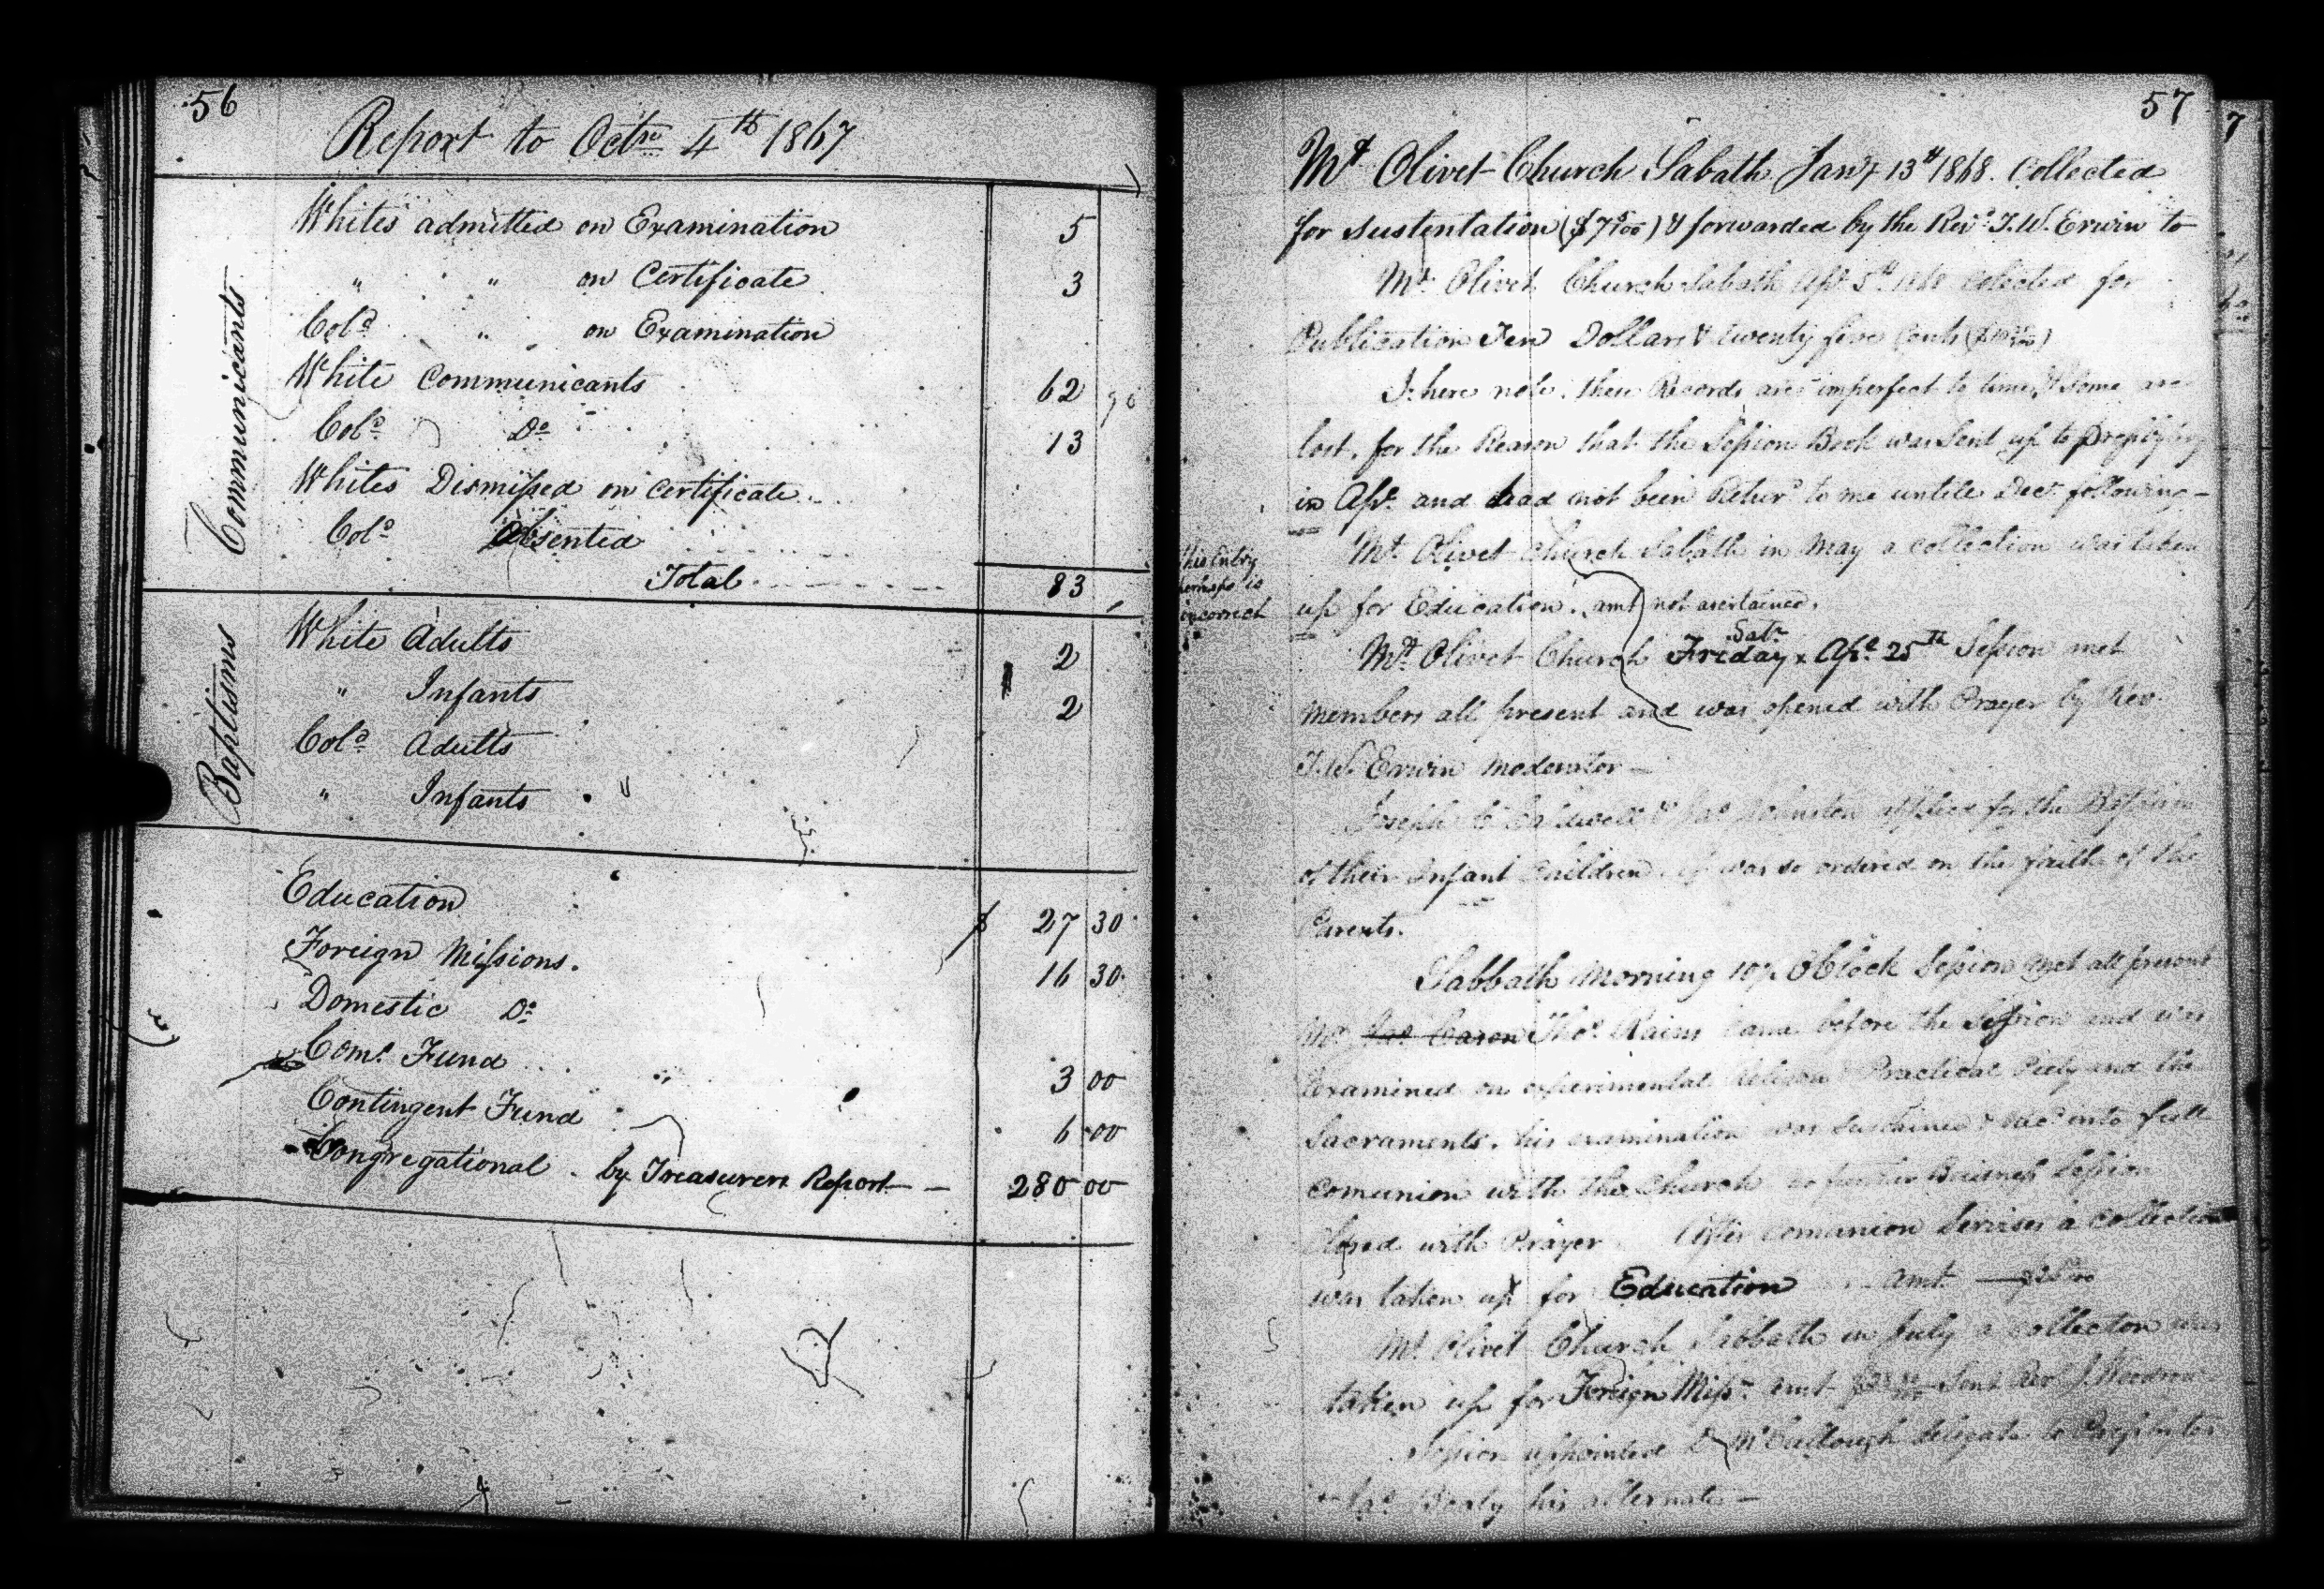 56
Report to Octr 4th 1867
Communicants
Whites admitted on Examination 5
" " on Certificate 3
Cold " on Examination
White Communicants 62
Cold Do 13
Whites Dismissed on Certificate
Cold Absented
Total 83
Baptisms
White Adults 2
" Infants 2
Cold Adults
" Infants "
Education $ 27 30
Foreign Missions. 16 30
Domestic Do
Comt Fund 3 00
Contingent Fund 6 00
Congregational by Treasurers Report 280 00
57
Mt Olivet Church Sabath Jany 13th 1868. Collected
for sustentation ($7 5/100) & forwarded by the Revd T. W. Erwin to
Mt Olivet Church Sabath Apl 5th 1868 Colected for
Publication Ten Dollars & twenty five Cents
I here note. these Records are imperfect to time, & some are
lost, for the Reason that the Session Book was sent up to Presbytry
in Apl and had not been Returd to me untile Dect following -
This Entry
perhaps is
incorrect
Mt Olivet Church Sabath in May a collection was taken
up for Education. amt not asertained.
Mt Olivet Church Friday Satr Apl 25th Session met
members all present and was opened with Prayer by Rev
T. W. Erwin Moderator -
Joseph C Caldwell & Jas Johnston applied for the Baptism
of their Infant Children. it was so ordered on the faith of the
Parents.
Sabbath Morning 10½ Oclock Session met all present
Mr Jas Caron Thos Rains came before the Session and was
examined on experimental Religion & Practical Piety and the
Sacraments. his examination was sustained & recd into full
comunion with the Church no further Buisness Session
closed with Prayer After Comunion Servises a collection
was taken up for Education amt
Mt Olivet Church Sabbath in July a collection was
taken up for Foreign Miss. amt Sent Rev J. Woodrow
Session appointed D McCullough delegate to Presbytry
& Jas Beaty his alternate -
7